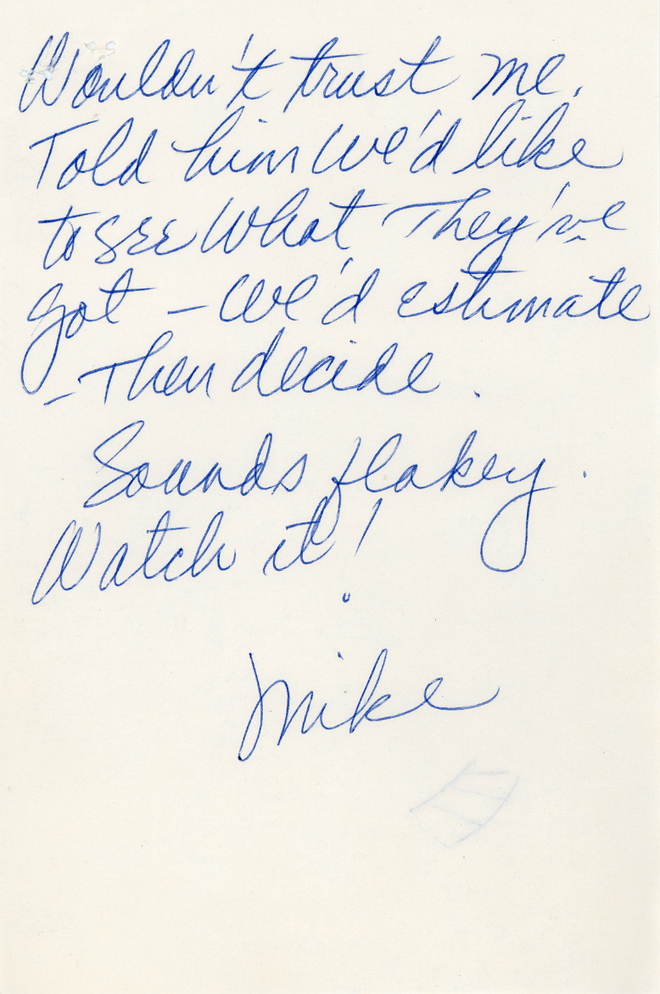 Wouldn't trust me.
Told him We'd like
to see What They've
got – We'd estimate
– Then decide.
Sounds flakey.
Watch it!
Mike